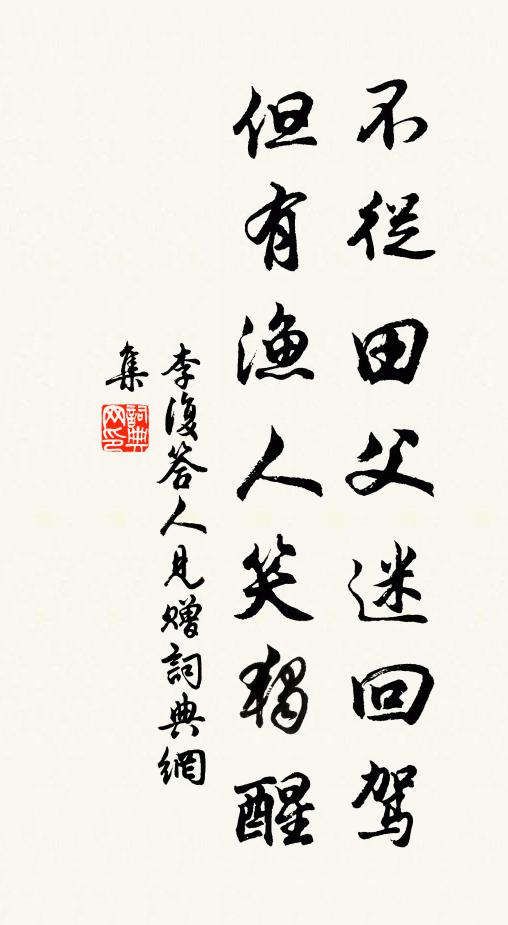 不從田父迷回駕
但有漁人笑獨醒
李復答人見贈詞典網
集
詞典
网印